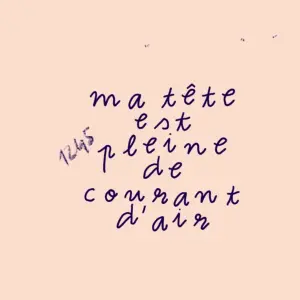 ma tête
est
1245
pleine
de
courant
d'air